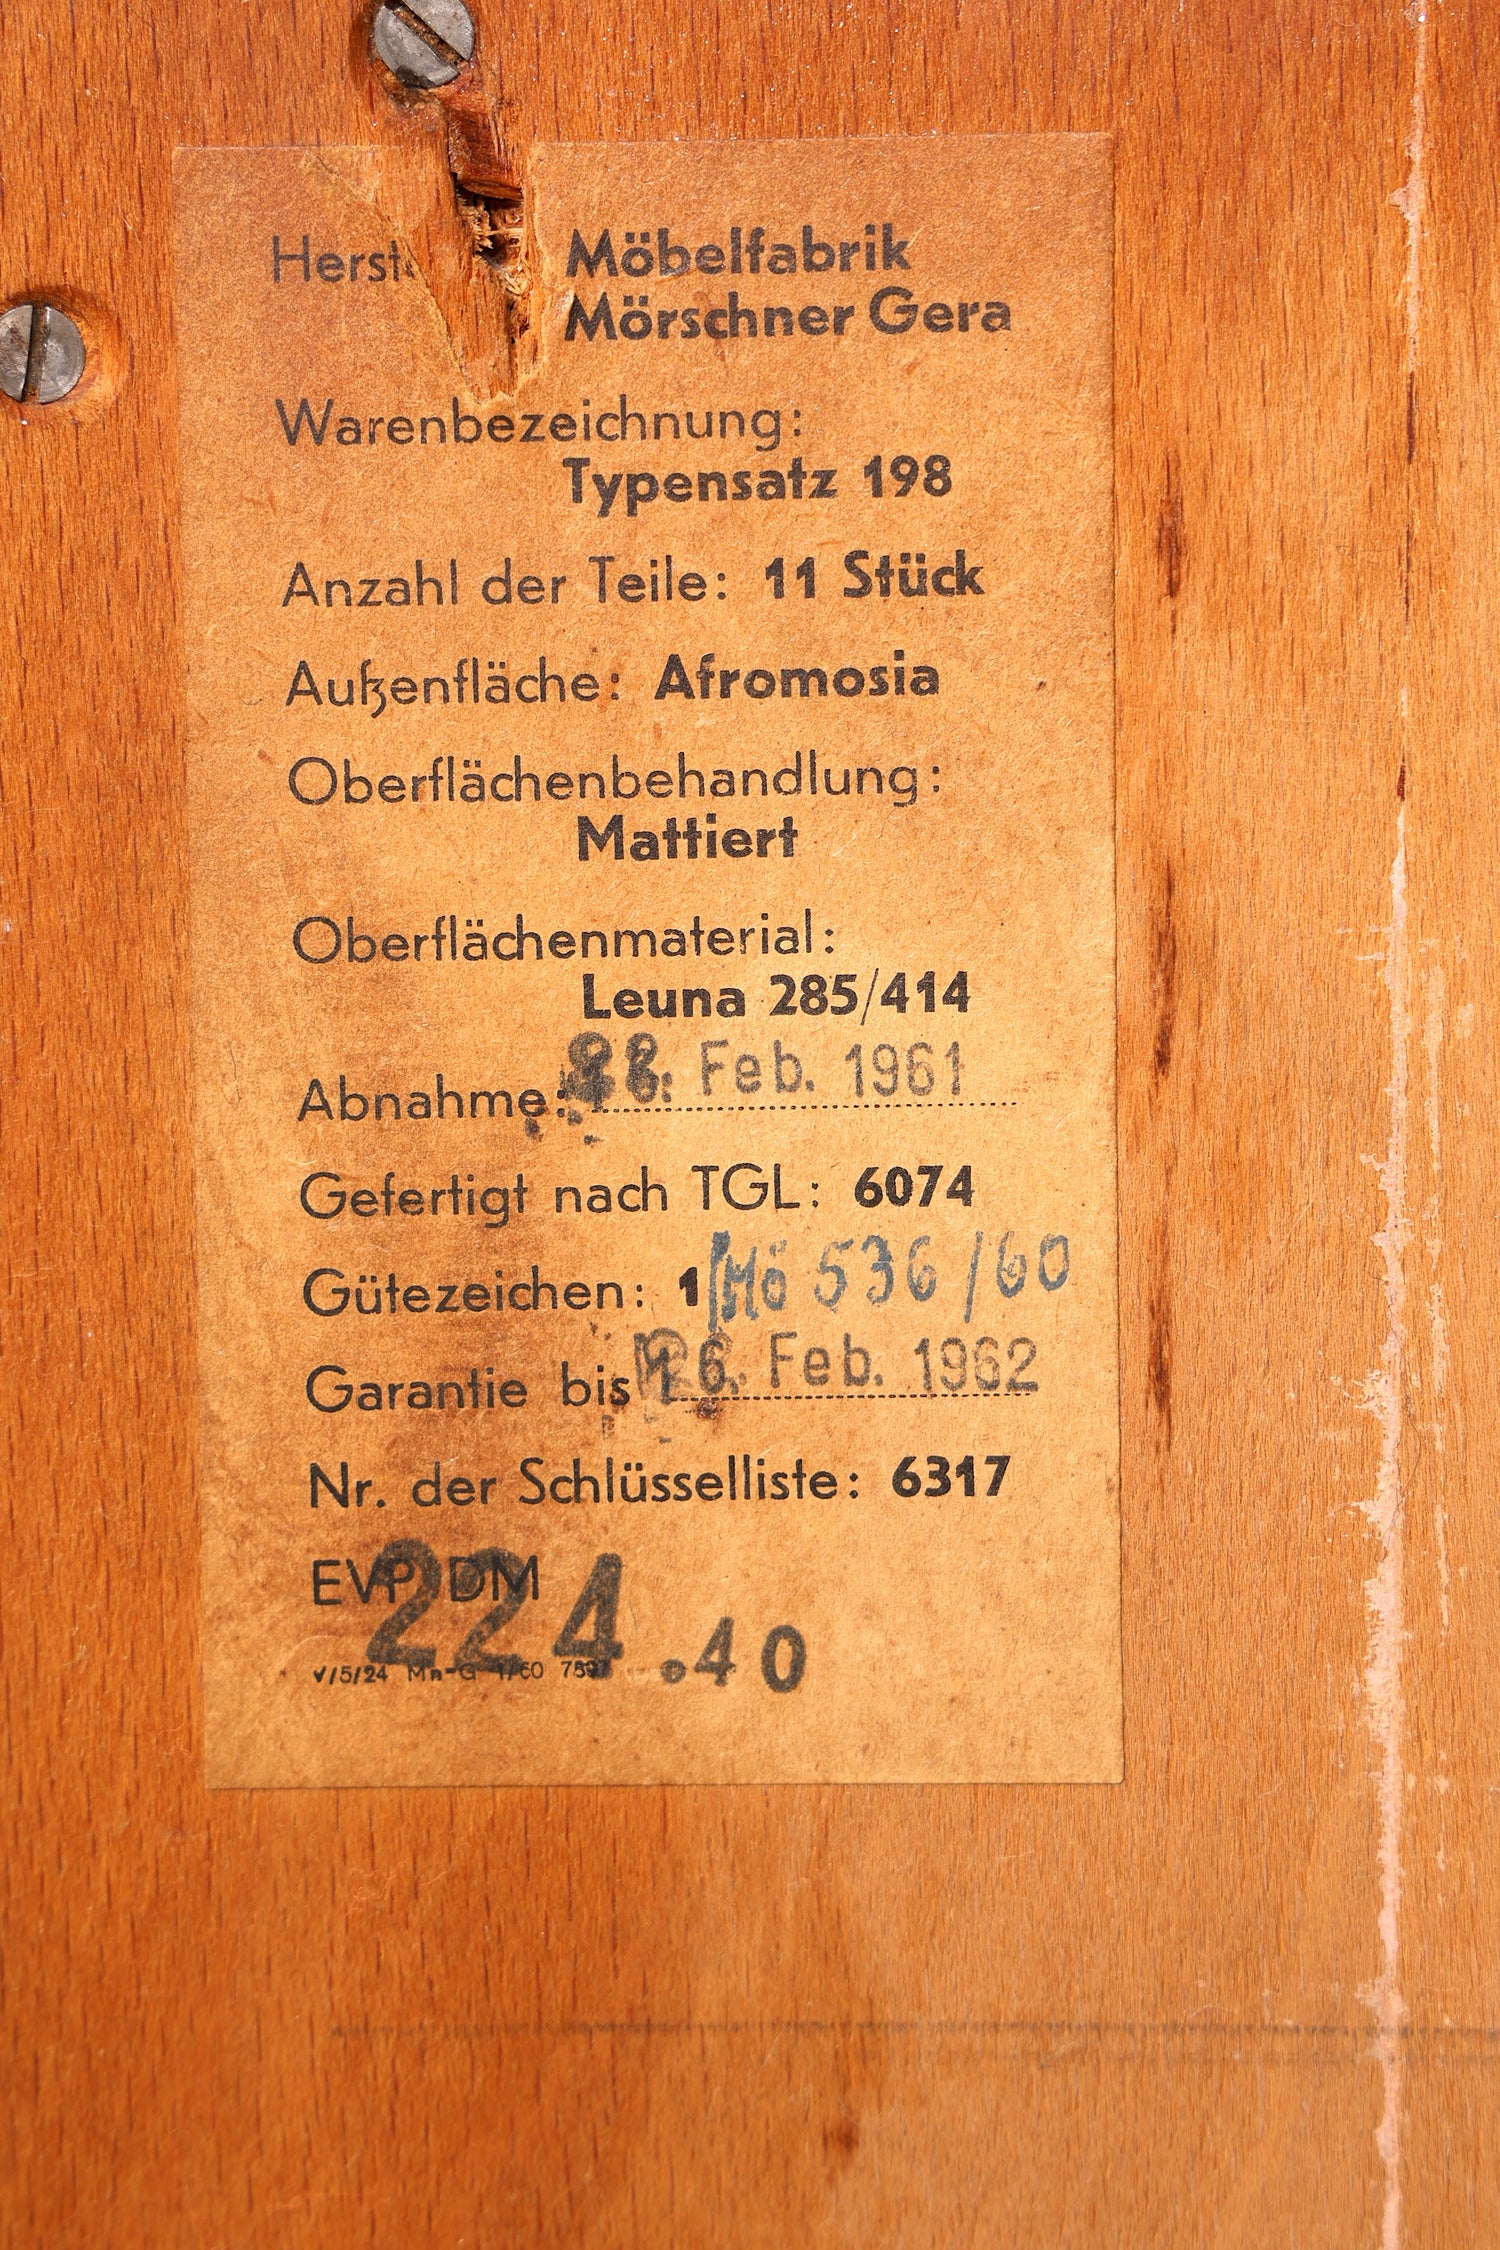 Herst Möbelfabrik
Mörschner Gera
Warenbezeichnung:
Typensatz 198
Anzahl der Teile: 11 Stück
Außenfläche: Afromosia
Oberflächenbehandlung:
Mattiert
Oberflächenmaterial:
Leuna 285/414
Abnahme: Feb. 1961
Gefertigt nach TGL: 6074
Gütezeichen: 1/Mö 536/60
Garantie bis Feb. 1962
Nr. der Schlüsselliste: 6317
EVP DM
224.40
V/5/24 Mn-G 1/60